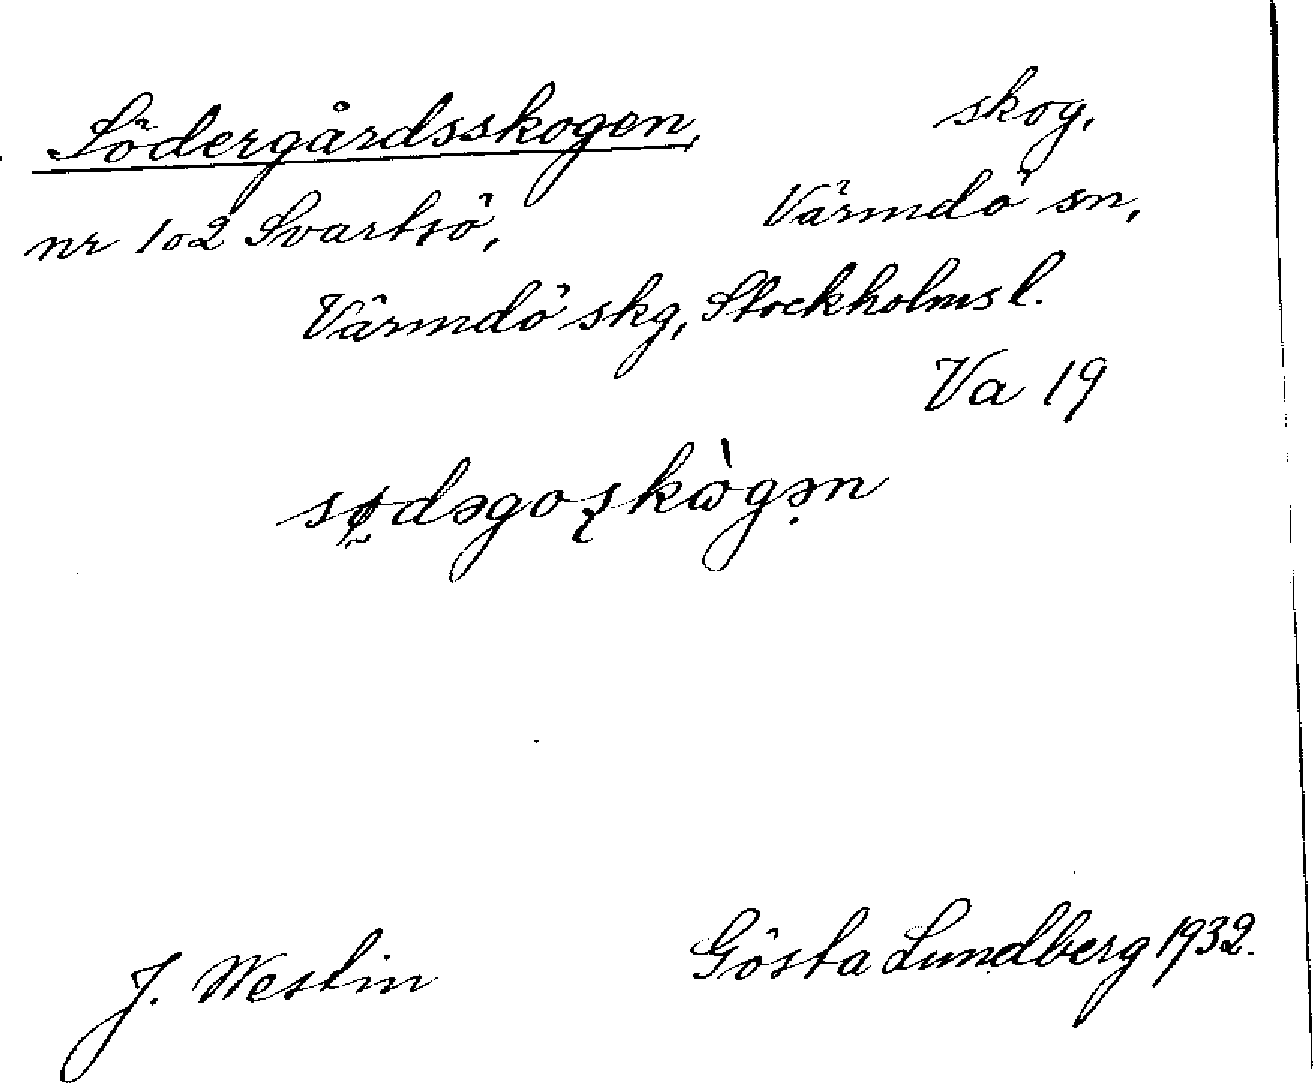 Södergårdsskogen, skog,
nr 102 Svartsö, Värmdö sn,
Värmdö skg, Stockholms l.
Va 19
sødəgoʂkὼgən
J. Westin Gösta Lundberg 1932.